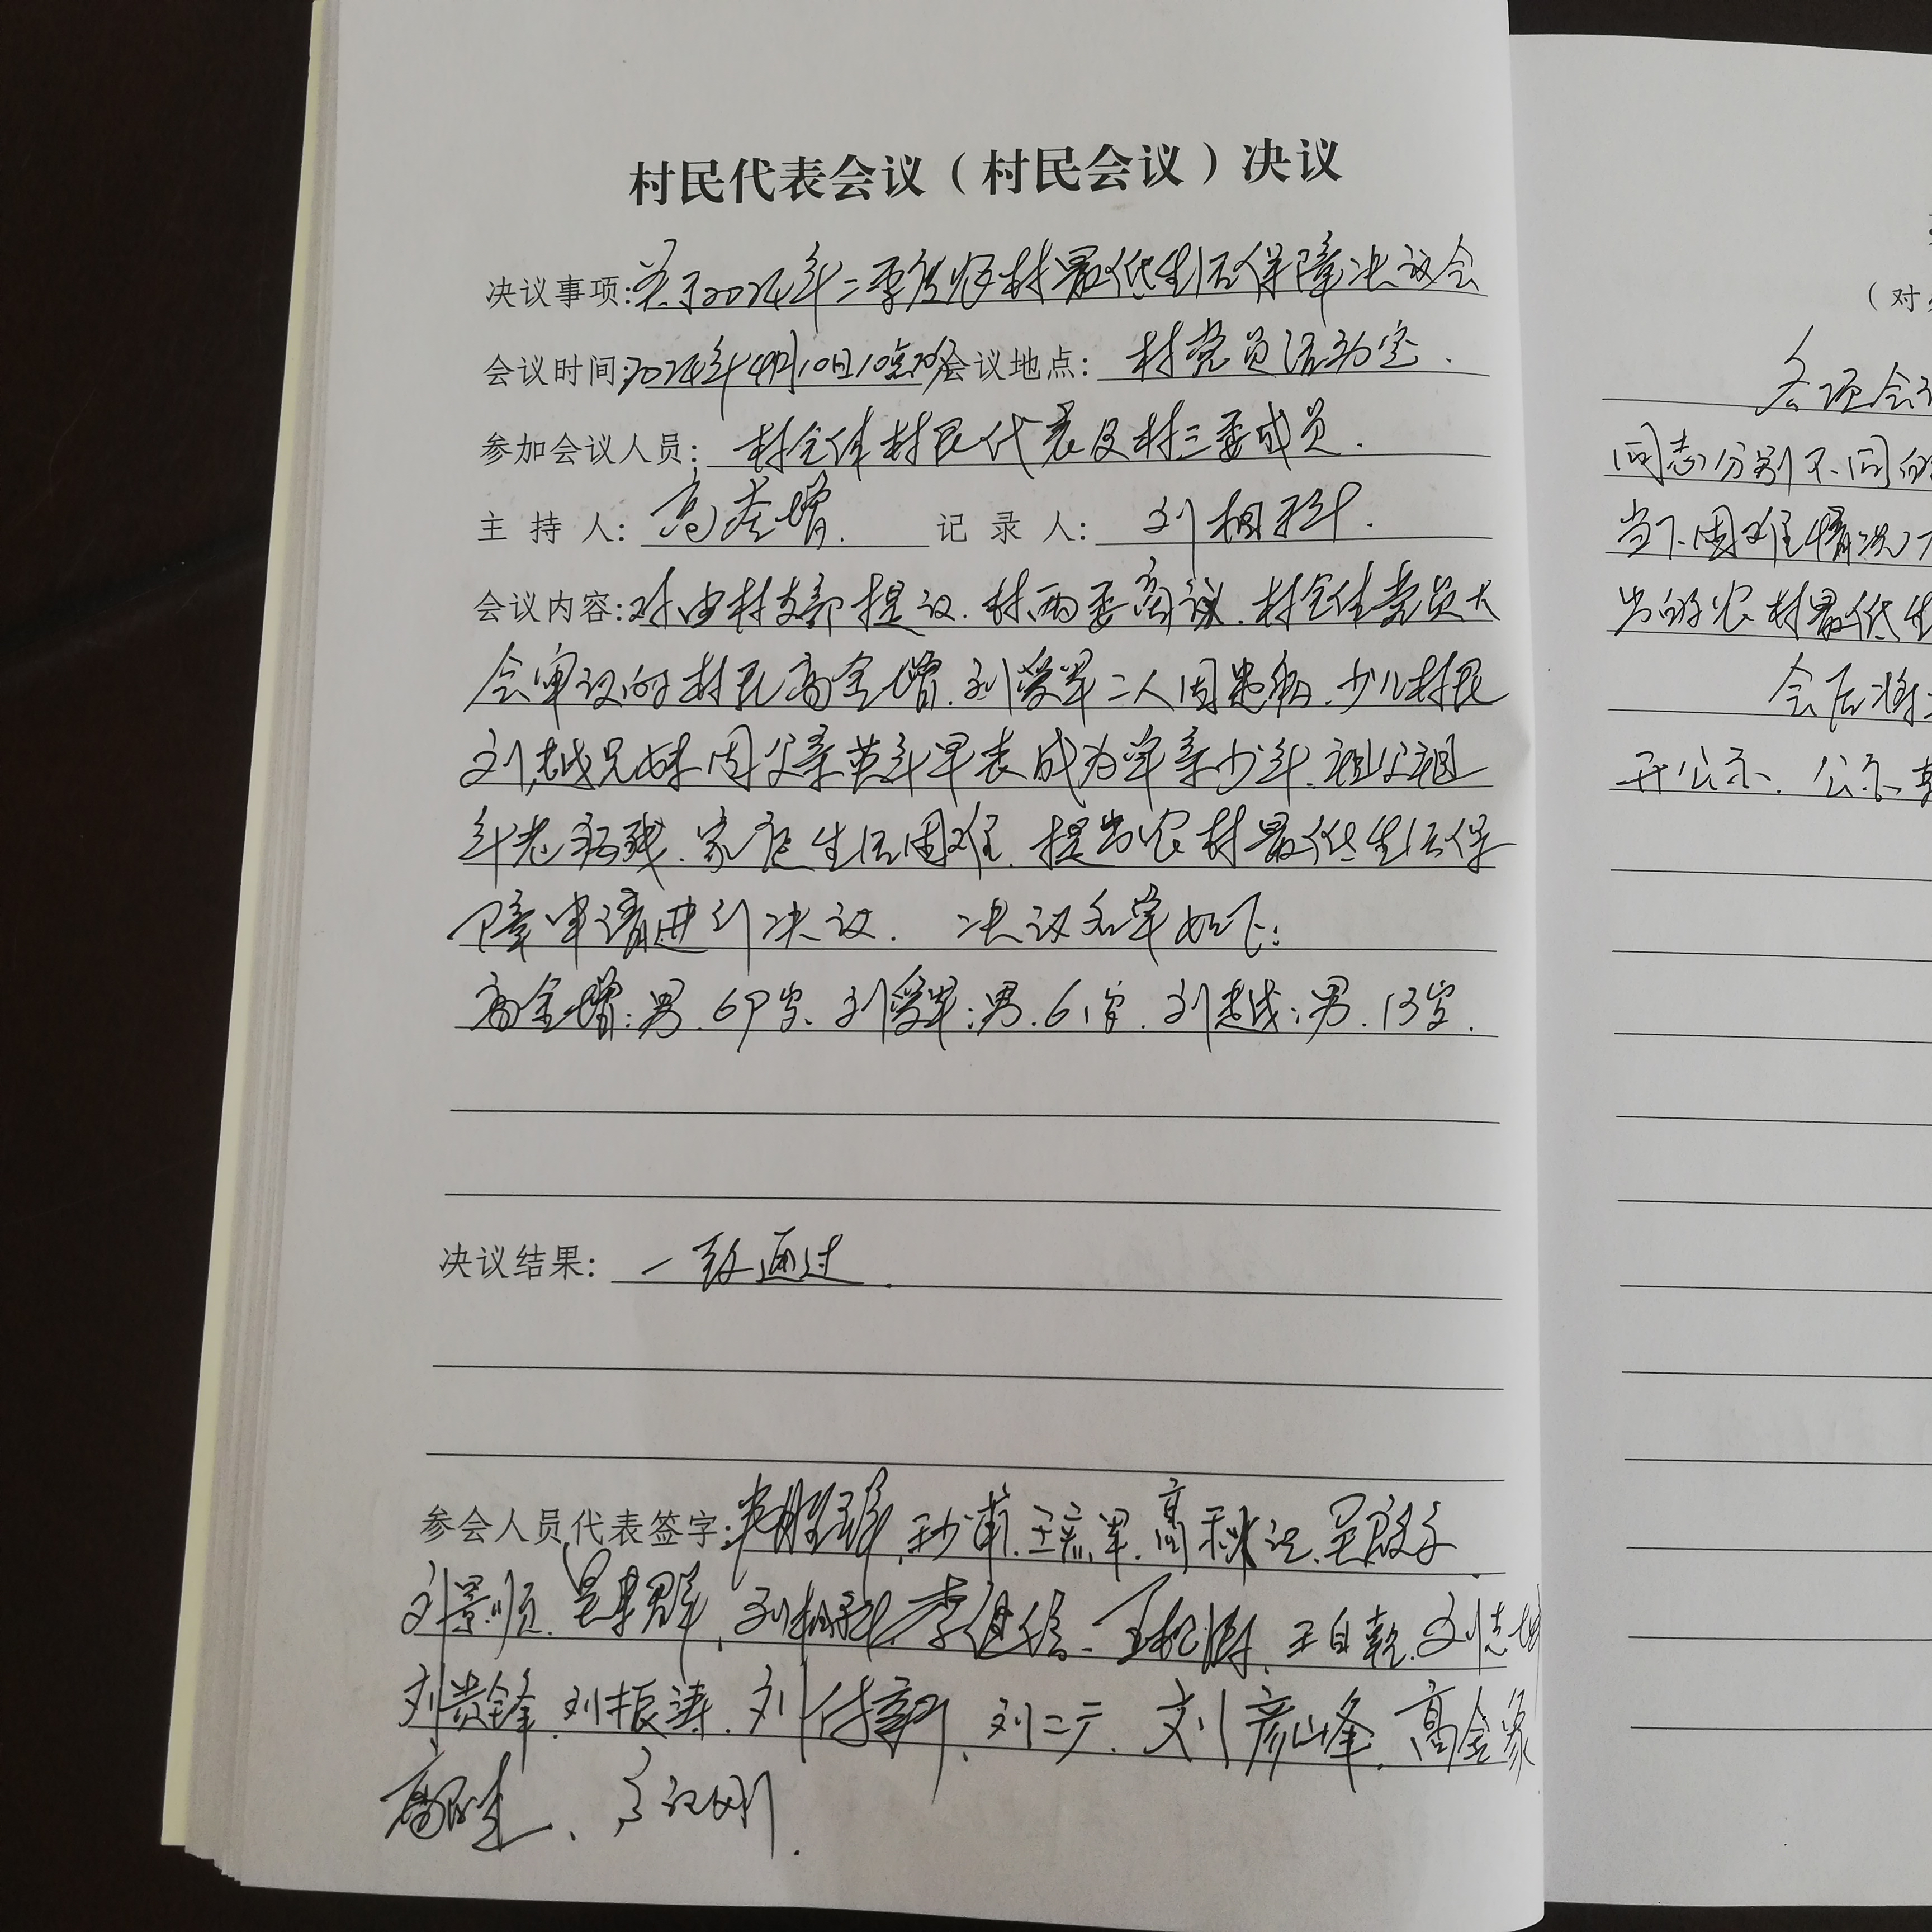 村民代表会议（村民会议）决议
决议事项:关于2024年二季度农村最低生活保障决议会
会议时间:2024年4月10日10点 会议地点: 村党员活动室.
参加会议人员: 村全体村民代表及村三委成员.
主 持 人: 高 增. 记 录 人: 刘相科.
会议内容:对由村支部提议.村两委商议.村全体党员大
会审议的村民高金增.刘爱军二人因患病.少儿村民
刘越兄妹因父亲英年早丧成为单亲少年.祖父祖
年老病残.家庭生活困难.提出农村最低生活保
障申请进行决议. 决议名单如下:
高金增:男.69岁、刘爱军:男.61岁.刘越:男.13岁.
决议结果: 一致通过.
参会人员代表签字: 高秋
刘景顺. 刘相科. 王自乾. 刘志
刘贵锋.刘振涛.刘 .刘二 .刘彦峰.高金象
（对
各项会
同志分别不同的
当下困难情况
出的农村最低生
会后将
开公示、公示